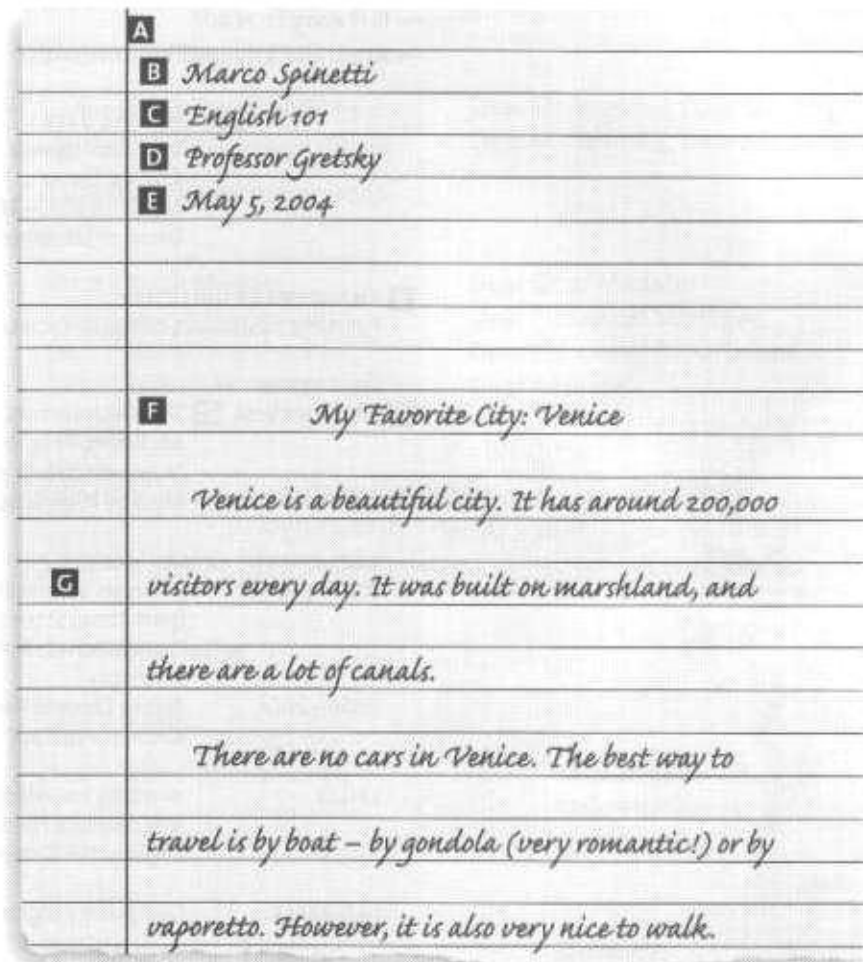 A
B Marco Spinetti
C English 101
D Professor Gretsky
E May 5, 2004
F My Favorite City: Venice
Venice is a beautiful city. It has around 200,000
G visitors every day. It was built on marshland, and
there are a lot of canals.
There are no cars in Venice. The best way to
travel is by boat – by gondola (very romantic!) or by
vaporetto. However, it is also very nice to walk.